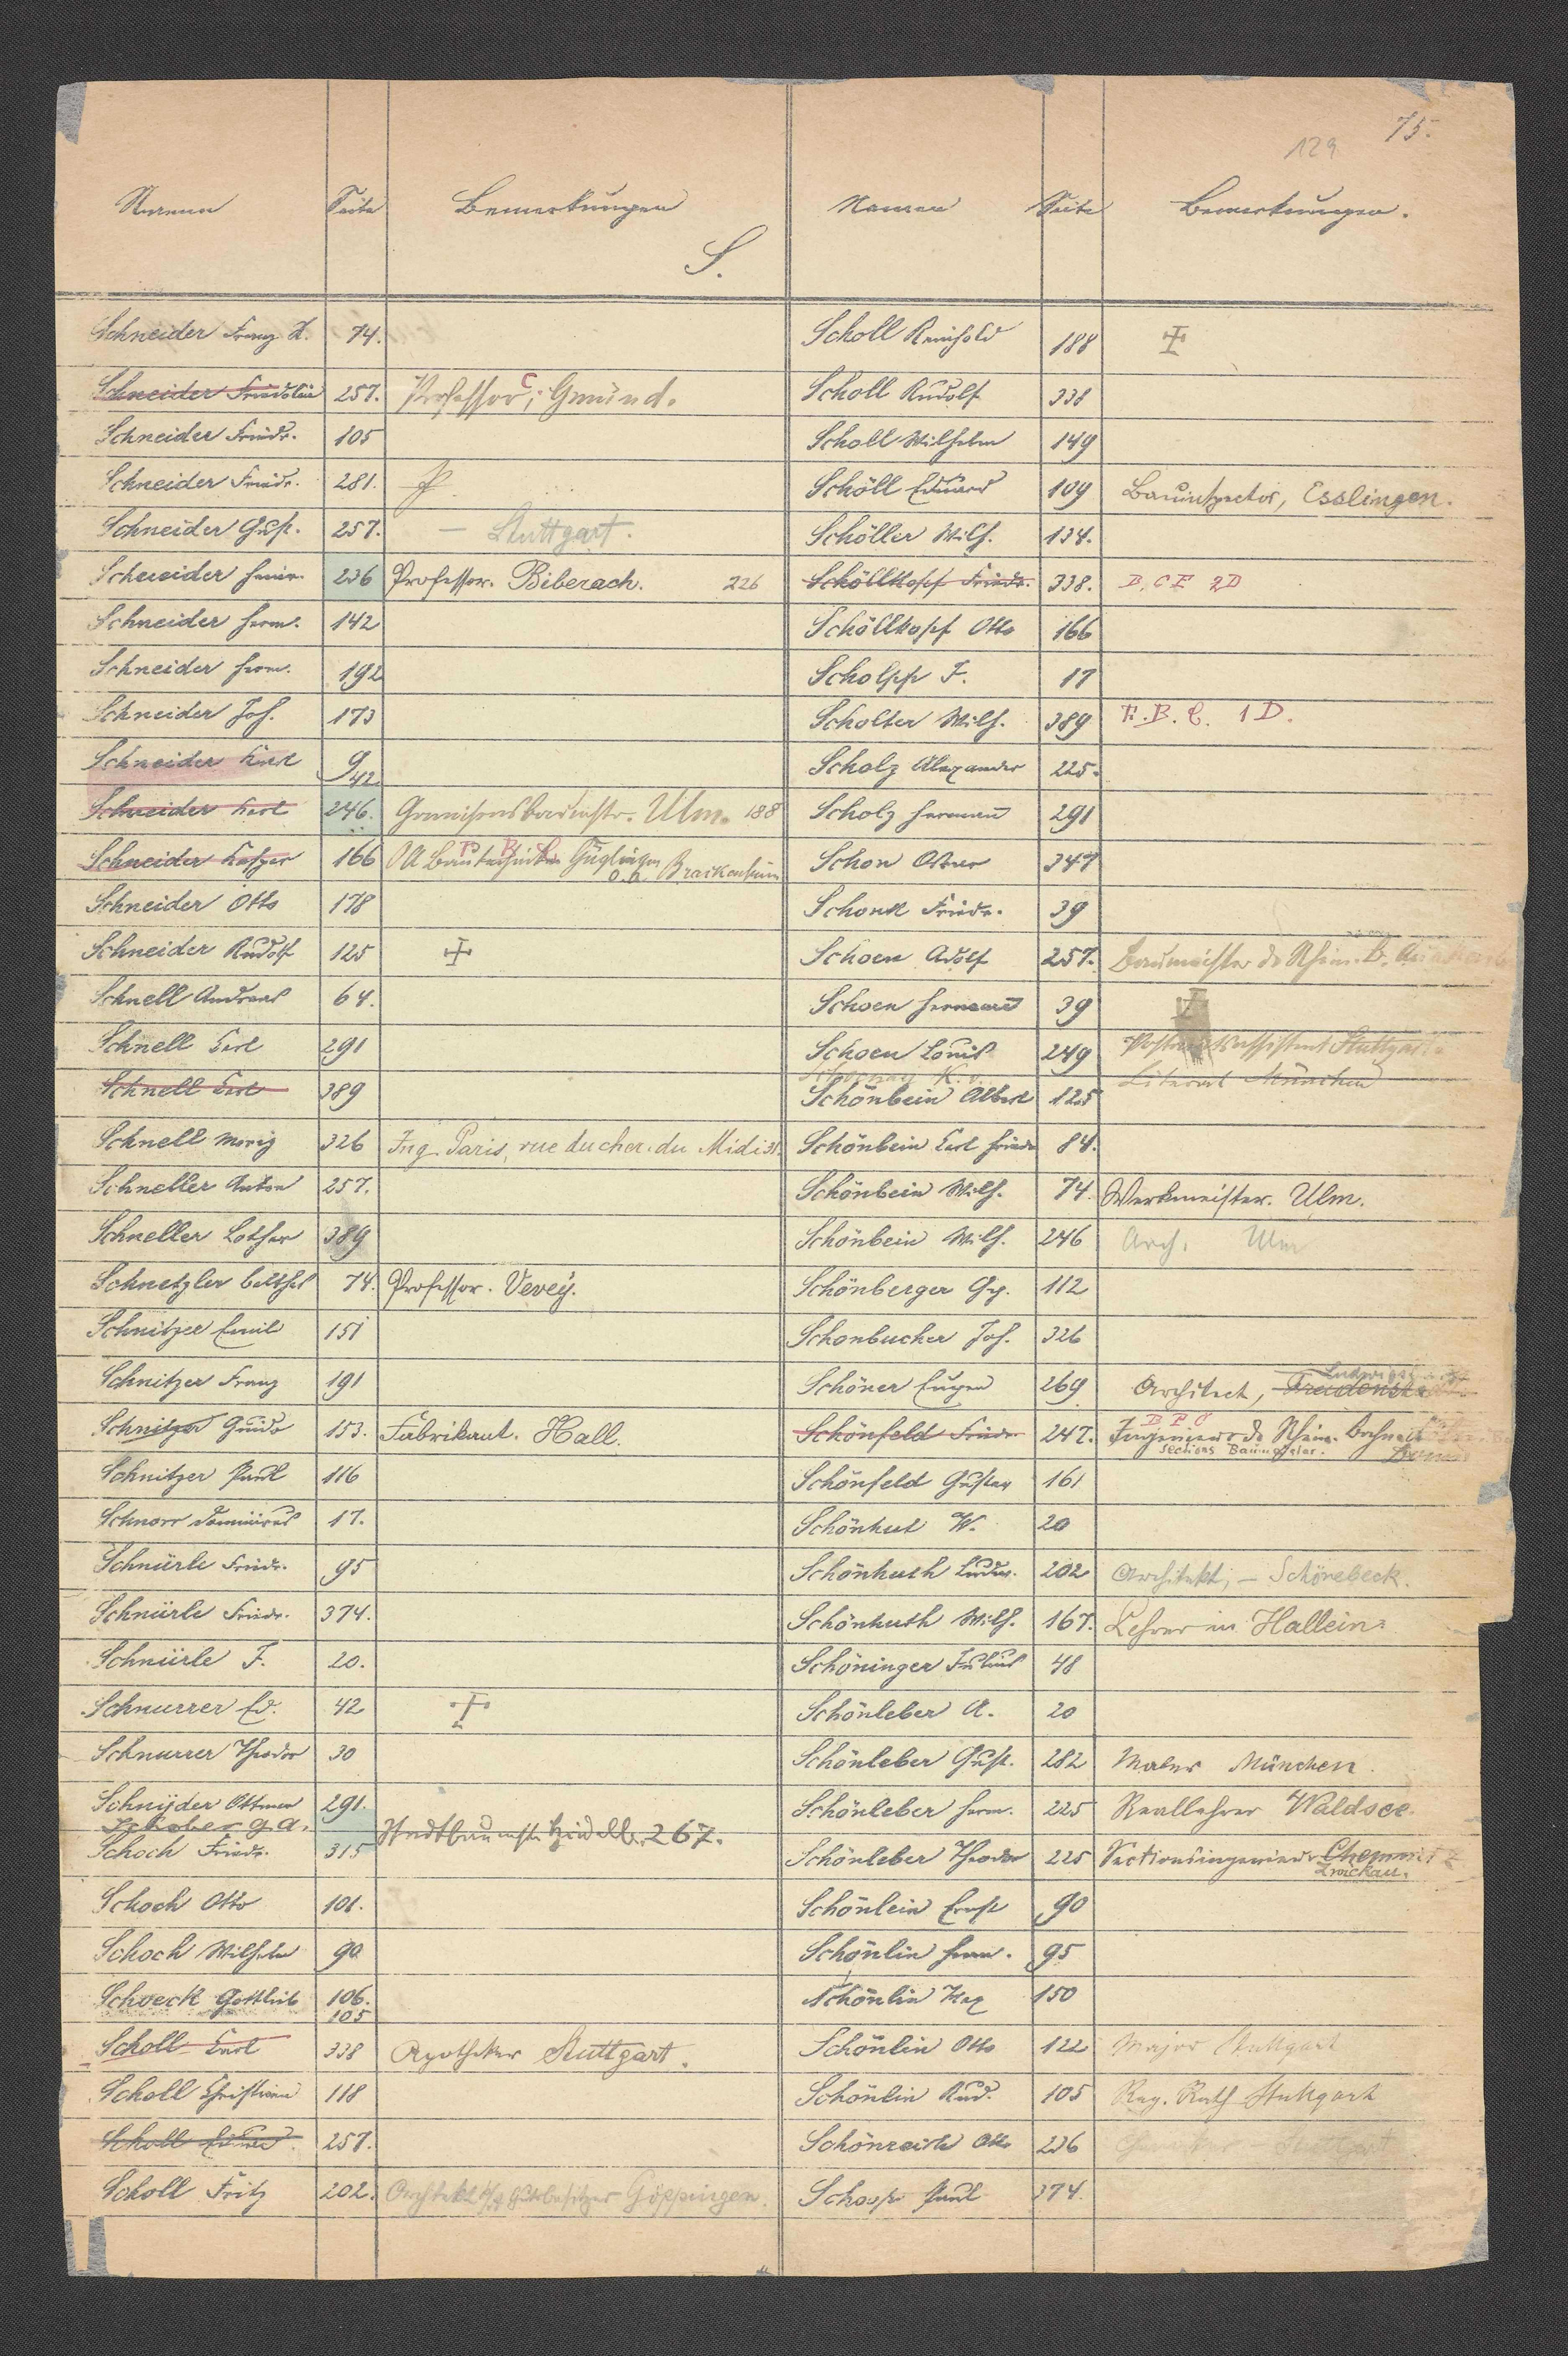 75.
129
Namen Seite Bemerkungen
S.
Schneider Franz X. 74.
Schneider Fridolin 257. Professor, C. Gmünd.
Schneider Friedr. 105
Schneider Friedr. 281.
Schneider Gust. 257. — Stuttgart.
Schneider Heinr. 236 Professor. Biberach. 226
Schneider Herm. 142
Schneider Herm. 192
Schneider Jos. 173
Schneider Karl 9 42
Schneider Karl 246. Garnisonsbaumstr. Ulm. 188
Schneider 166 OA Bautechniker Güglingen O.A. Brackenheim
Schneider Otto 178
Schneider Rudolf 125
Schnell Andreas 64.
Schnell Carl 291
Schnell Carl 389
Schnell Moriz 326 Ing. Paris, rue du cher. du Midi 31.
Schneller Anton 257.
Schneller Lothar 389
Schnetzler Balthas 74. Professor. Vevey.
Schnitzer Emil 151
Schnitzer Franz 191
Schnitzer Guido 153. Fabrikant. Hall.
Schnitzer Paul 116
Schnorr Dominicus 17.
Schnürle Friedr. 95
Schnürle Friedr. 374.
Schnürle F. 20.
Schnurrer Ed. 42
Schnurrer Theodor 30
Schnyder Ottmar 291.
Schober G. A. Stadtbaumstr. 267.
Schoch Friedr. 315
Schoch Otto 101.
Schoch Wilhelm 90
Schoeck Gottlieb 106. 105
Scholl Carl 338 Apotheker Stuttgart.
Scholl Christian 118
Scholl Eduard 257.
Scholl Fritz 202. Architekt Gutsbesitzer Göppingen.
Namen Seite Bemerkungen.
Scholl Reinhold 188
Scholl Rudolf 338
Scholl Wilhelm 149
Schöll Eduard 109 Bauinspector, Esslingen.
Schöller Wilh. 134.
Schöllkopf Friedr. 338. B. C F 2D
Schöllkopf Otto 166
Scholpp F. 17
Scholter Wilh. 389 F. B. C. 1 D.
Scholz Alexander 225.
Scholz Hermann 291
Schon 347
Schonk Friedr. 39
Schoen Adolf 257. Baumeister d. Rhein. B.
Schoen Hermann 39
Schoen Louis 249 Postamtsassistent Stuttgart
K. v. Literat München
Schönbein Albert 125
Schönbein Carl Friedr 84.
Schönbein Wilh. 74. Werkmeister. Ulm.
Schönbein Wilh. 246 Arch. Ulm
Schönberger Gg. 112
Schonbucher Jos. 326
Schöner Eugen 269 Architect, Freudenstadt
Schönfeld Friedr. 247. B F C Ingenieur d. Rhein.
Sections Bauinspector.
Schönfeld Gustav 161
Schönhut W. 20
Schönhuth Ludw. 202 Architekt, — Schönebeck.
Schönhuth Wilh. 167. Lehrer in Hallein.
Schöninger Julius 48
Schönleber A. 20
Schönleber Gust. 282 Maler München.
Schönleber Herm. 225 Reallehrer Waldsee.
Schönleber Theodor 225 Sectionsingenieur Chemnitz
Zwickau.
Schönlein Ernst 90
Schönlin Herm. 95
Schönlin Max 150
Schönlin Otto 122 Major Stuttgart
Schönlin Rud. 105 Reg. Rath Stuttgart
Schönreich Otto 236 Stuttgart
Schoop Paul 374.